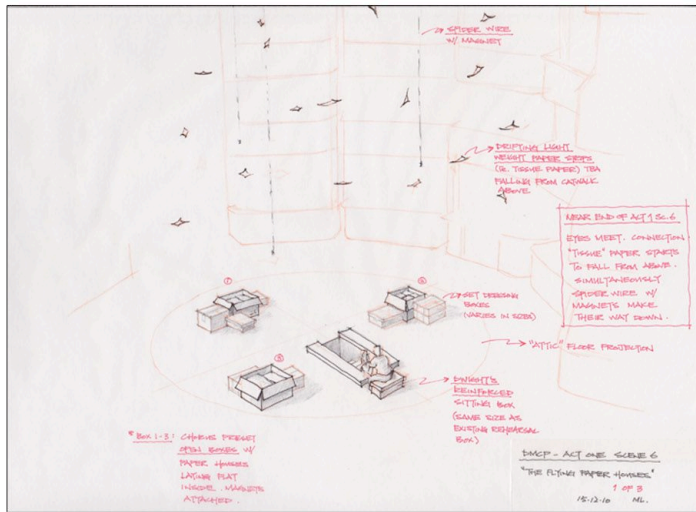 SPIDER WIRE
W/ MAGNET
DRIFTING LIGHT
WEIGHT PAPER STRIPS
(IE TISSUE PAPER) TBA
FALLING FROM CATWALK
ABOVE
NEAR END OF ACT 1 SC. 6
EYES MEET. CONNECTION
"TISSUE" PAPER STARTS
TO FALL FROM ABOVE.
SIMULTANEOUSLY
SPIDER WIRE W/
MAGNETS MAKE
THEIR WAY DOWN.
1
2
SET DRESSING
BOXES
(VARIES IN SIZES)
"ATTIC" FLOOR PROJECTION
3
DWIGHT'S
REINFORCED
SITTING BOX
(SAME SIZE AS
EXISTING REHEARSAL
BOX)
* BOX 1-3: CHORUS PRESET
OPEN BOXES W/
PAPER HOUSES
LAYING FLAT
INSIDE. MAGNETS
ATTACHED.
DMCP - ACT ONE SCENE 6
"THE FLYING PAPER HOUSES"
1 OF 3
15.12.10 ML.